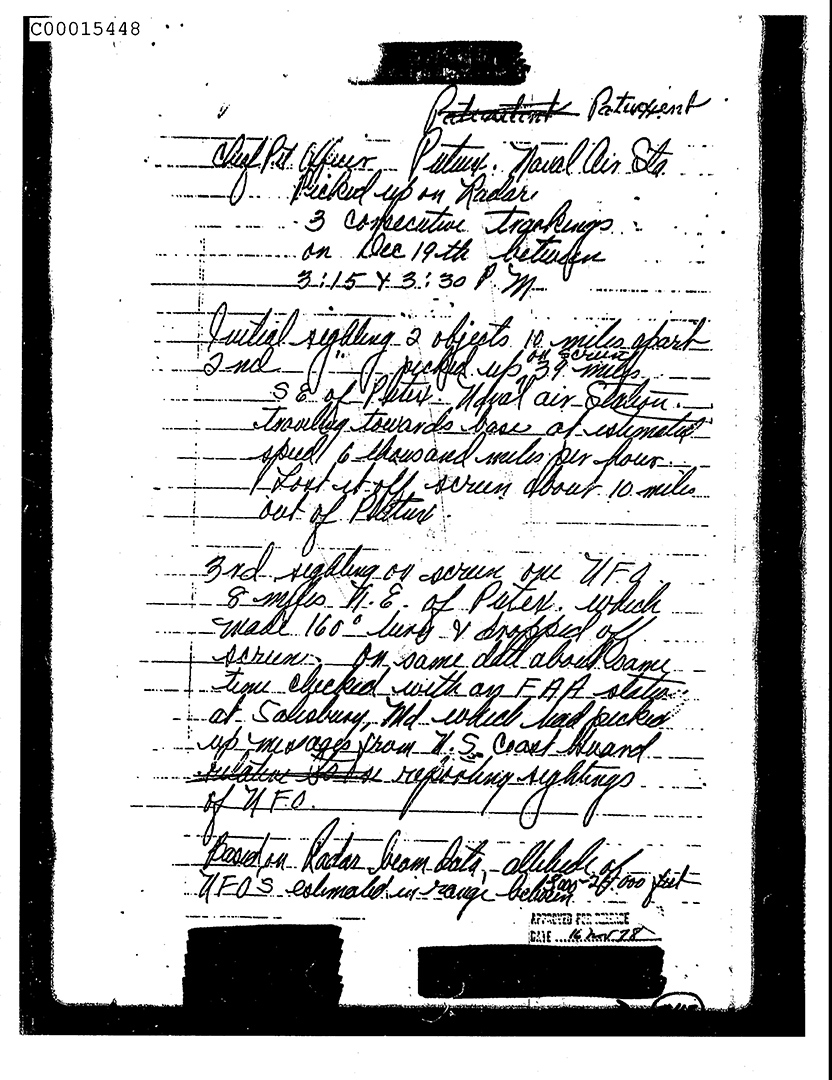 C00015448
Patuxent
Chief Pet Officer Patux. Naval Air Sta.
Picked up on Radar
3 consecutive trackings
on Dec 19th between
3:15 & 3:30 P M
Initial sighting 2 objects 10 miles apart
on screen
2nd " picked up 39 miles
S E. of Patux. Naval air Station.
traveling towards base at estimated
speed 6 thousand miles per hour
Lost it off screen about 10 miles
out of Patux.
3rd sighting on screen one UFO
8 miles N. E. of Patux. which
made 160° turn & dropped off
screen. On same date about same
time checked with an FAA station
at Salisbury, Md which had picked
up messages from U.S. Coast Guard
reporting sightings
of U F O.
Based on Radar beam data, altitude of
UFOS estimated in range between feet
APPROVED FOR RELEASE
DATE 16 Nov 78